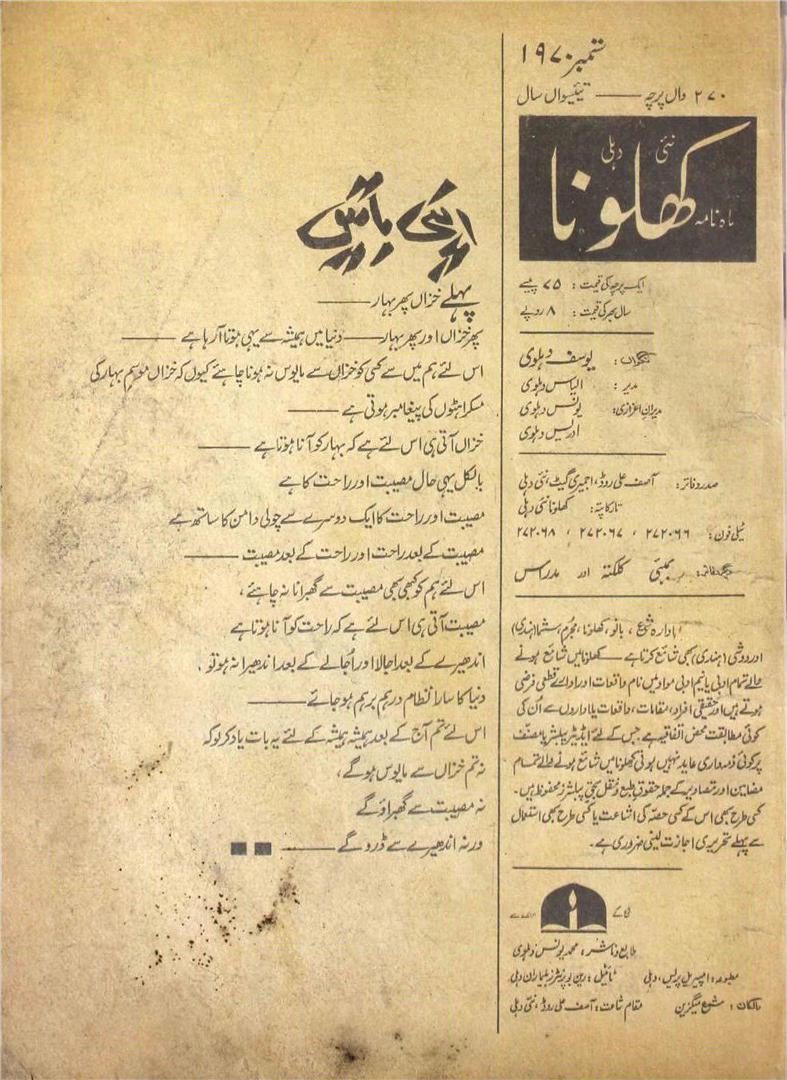 ستمبر ۱۹۷۰
۲۷۰ واں پرچہ —— تیئیسواں سال
نئی دہلی
ماہ نامہ کھلونا
ایک پرچہ کی قیمت : ۷۵ پیسے
سال بھر کی قیمت : ۸ روپے
نگراں : یوسف دہلوی
مدیر : الیاس دہلوی
مدیرانِ اعزازی : یونس دہلوی
ادریس دہلوی
صدر دفاتر : آصف علی روڈ، اجمیری گیٹ، نئی دہلی
تار کا پتہ : کھلونا نئی دہلی
ٹیلی فون : ۲۷۲۰۶۶ ، ۲۷۲۰۶۷ ، ۲۷۲۰۶۸
دیگر دفاتر : بمبئی کلکتہ اور مدراس
ادارہ شمع ، بانو، کھلونا، مجرم، سشما (ہندی)
اور دوشی (ہندی) بھی شائع کرتا ہے — کھلونا میں شائع ہونے
والے تمام ادبی یا نیم ادبی مواد میں نام واقعات اور ادارے قطعی فرضی
ہوتے ہیں اور حقیقی افراد، مقامات، واقعات یا اداروں سے اُن کی
کوئی مطابقت محض اتفاقیہ ہے جس کے لئے ایڈیٹر پبلشر یا مصنّف
پر کوئی ذمہ داری عاید نہیں ہوتی کھلونا میں شائع ہونے والے تمام
مضامین اور تصاویر کے جملہ حقوق طبع و نقل بحق پبلشرز محفوظ ہیں۔
کسی طرح بھی اس کے کسی حصّہ کی اشاعت یا کسی طرح بھی استعمال
سے پہلے تحریری اجازت لینی ضروری ہے۔
طابع و ناشر : محمد یونس دہلوی
مطبوعہ : امپیریل پریس، دہلی ٹائیٹل : رین بو پرنٹرز بلیماران دہلی
مالکان : شمع میگزین مقام اشاعت : آصف علی روڈ، نئی دہلی
اپنی باتیں
پہلے خزاں پھر بہار ——
پھر خزاں اور پھر بہار —— دنیا میں ہمیشہ سے یہی ہوتا آرہا ہے ——
اس لئے ہم میں سے کسی کو خزاں سے مایوس نہ ہونا چاہئے کیوں کہ خزاں موسمِ بہار کی
مسکراہٹوں کی پیغامبر ہوتی ہے ——
خزاں آتی ہی اس لئے ہے کہ بہار کو آنا ہوتا ہے ——
بالکل یہی حال مصیبت اور راحت کا ہے
مصیبت اور راحت کا ایک دوسرے سے چولی دامن کا ساتھ ہے
مصیبت کے بعد راحت اور راحت کے بعد مصیبت ——
اس لئے ہم کو کبھی بھی مصیبت سے گھبرانا نہ چاہئے ،
مصیبت آتی ہی اس لئے ہے کہ راحت کو آنا ہوتا ہے
اندھیرے کے بعد اجالا اور اُجالے کے بعد اندھیرا نہ ہو تو ،
دنیا کا سارا نظام درہم برہم ہو جائے ——
اس لئے تم آج کے بعد ہمیشہ ہمیشہ کے لئے یہ بات یاد کر لو کہ
نہ تم خزاں سے مایوس ہوگے ،
نہ مصیبت سے گھبراؤ گے
اور نہ اندھیرے سے ڈرو گے ——